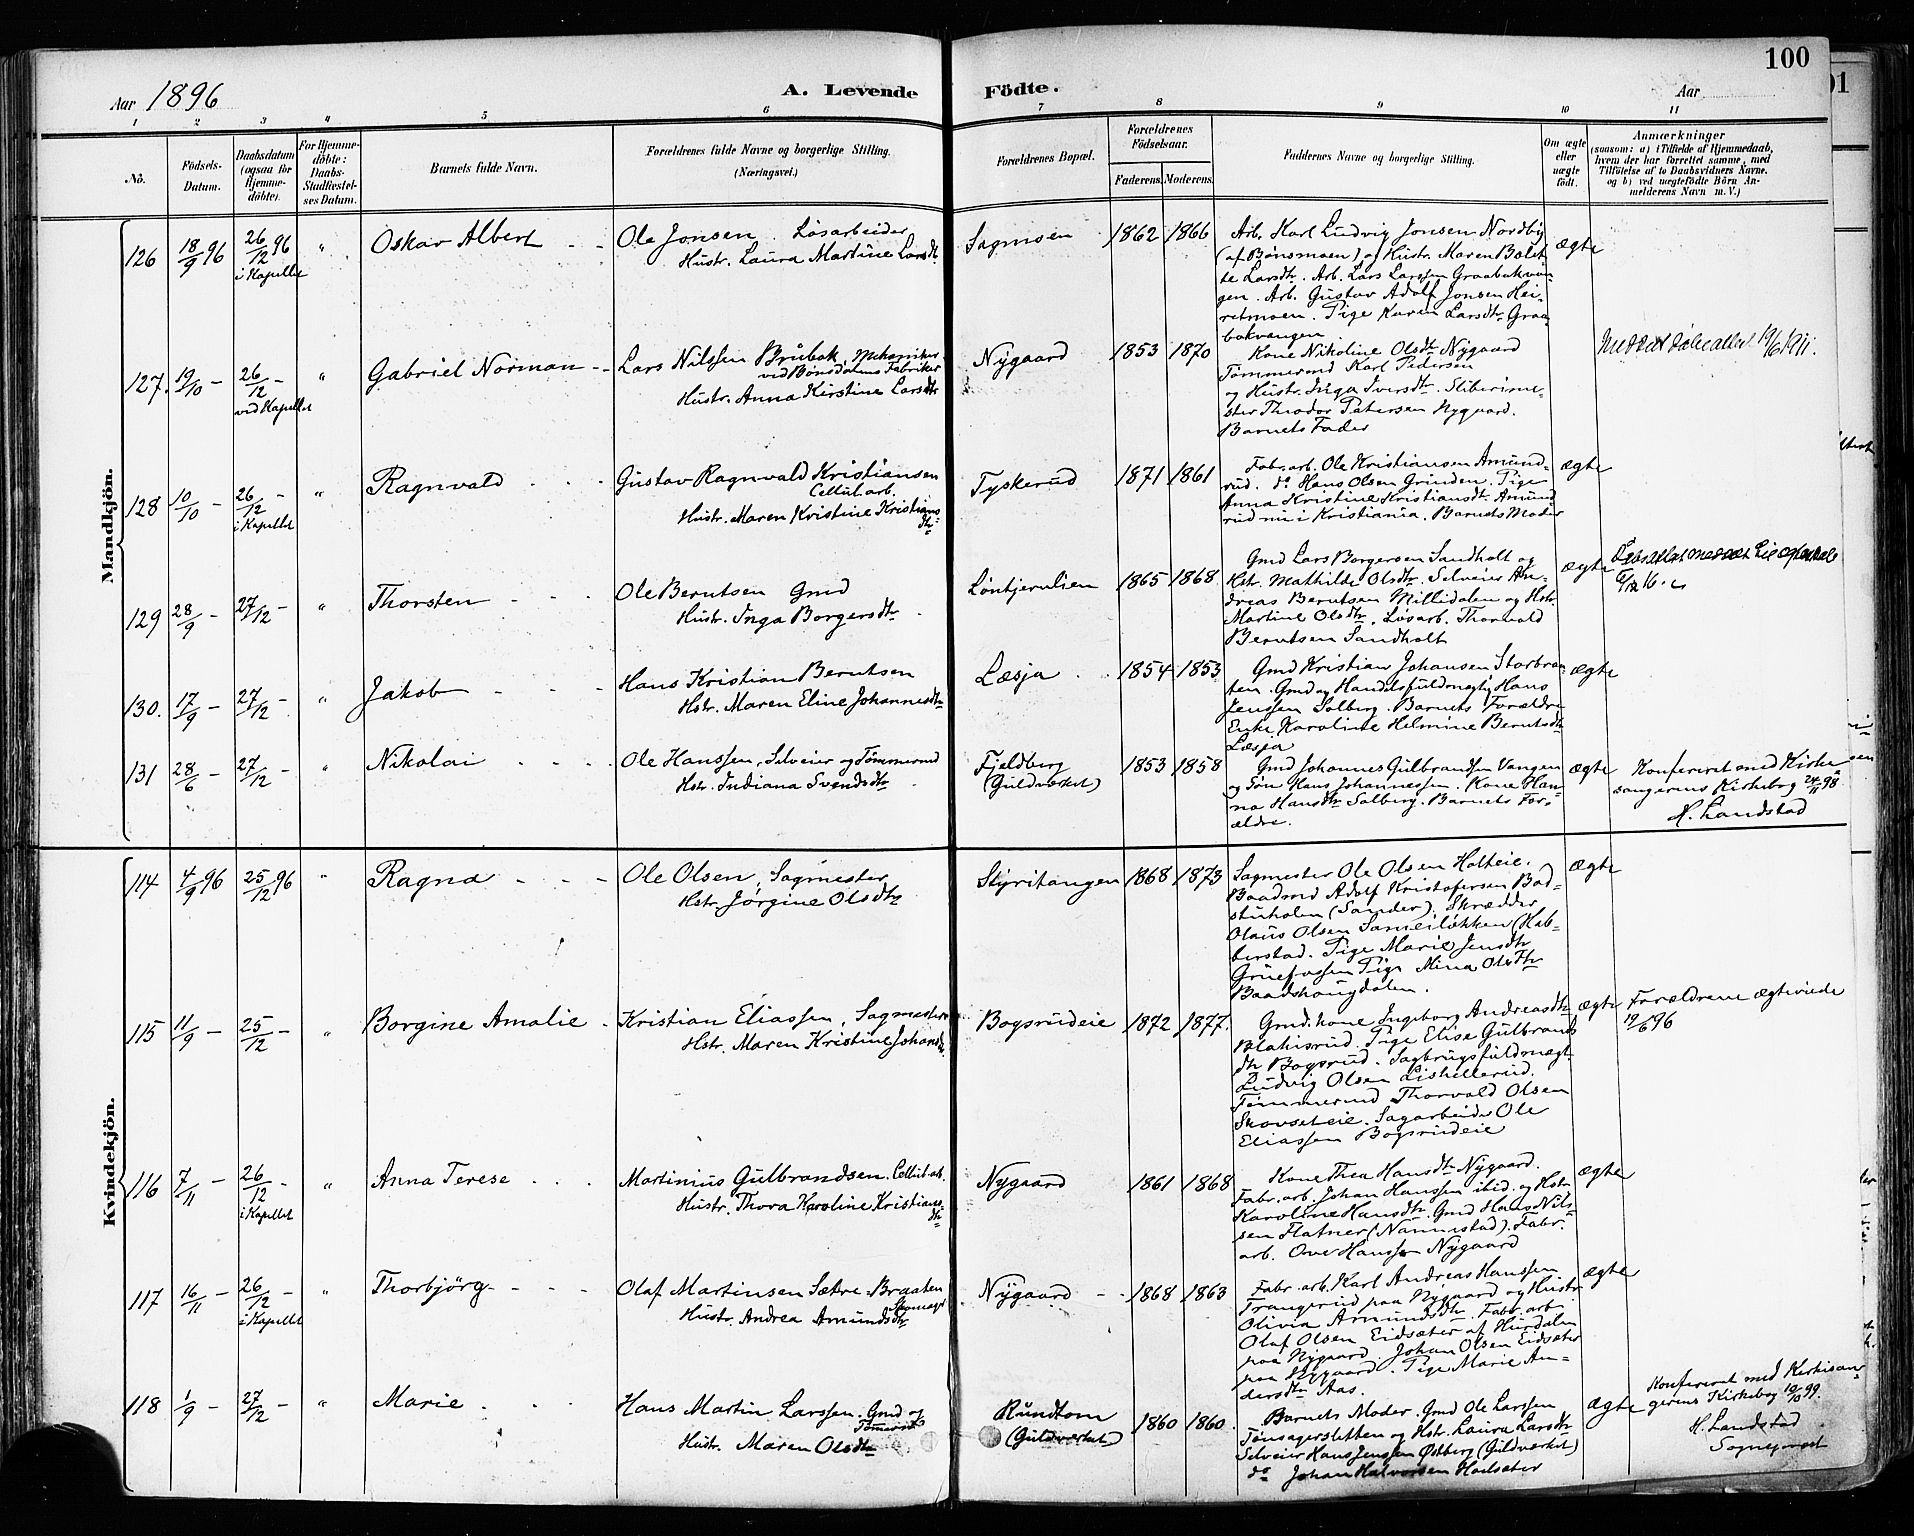 100
Aar 1896
A. Levende Födte.
Aar
1 2 3 4 5 6 7 8 9 10 11
No.
Födsels-Datum.
Daabsdatum (ogsaa for Hjemme-döbte).
For Hjemme-döbte: Daabs-Stadfæstel-ses Datum.
Barnets fulde Navn.
Forældrenes fulde Navne og borgerlige Stilling. (Næringsvei.)
Forældrenes Bopæl.
Forældrenes Födselsaar.
Faderens. Moderens.
Faddernes Navne og borgerlige Stilling.
Om ægte eller uægte födt.
Anmærkninger
(saasom: a) i Tilfælde af Hjemmedaab, hvem der har forrettet samme, med Tilföielse af to Daabsvidners Navne. og b) ved uægtefödte Börn An-melderens Navn m. V.)
Mandkjön.
126 18/9 96 26/12 96 i Kapellet " Oskar Albert
Ole Jonsen. Løsarbeider
Hustr. Laura Martine Larsdt.
Sagmoen 1862 1866
Arb. Karl Ludvig Jonsen Nordby
(af Bønsmoen) og Hustr. Maren Bolet-
te Larsdtr. Arb. Lars Larssen Graabakvan-
gen. Arb. Gustav Adolf Jonsen Hei-
retmoen. Pige Karen Larsdtr. Graa-
bakvangen
ægte
127. 19/10 - 26/12 - ved Kapellet " Gabriel Norman
Lars Nilssen Brubak, Mekaniker
ved Bønsdalens Fabriker
Hustr. Anna Kirstine Larsdtr
Nygaard 1853 1870
Kone Nikoline Olsdtr Nygaard
Tømmermd Karl Pedersen
og Hustr. Inga Iversdtr. Sliberime-
ster Theodor Petersen Nygaard.
Barnets Fader
19/6 1911.
128 10/10 - 26/12 - i Kapellet " Ragnvald
Gustav Ragnvald Kristiansen
Cellul.arb.
Hustr. Maren Kristine Kristians-
dtr
Tyskerud 1871 1861
Fabr.arb. Ole Kristiansen Amund-
rud. do Hans Olsen Grinden. Pige
Anna Kristine Kristiansdtr. Amund
rud nu i Kristiania. Barnets Moder
ægte
129 28/9 - 27/12 - " Thorsten
Ole Berntsen Gmd
Hustr. Inga Borgersdtr.
Løntjernlien 1865 1868
Gmd Lars Borgersen Sandholt og
Hstr. Mathilde Olsdtr. Selveier An-
dreas Berntsen Millidalen og Hstr.
Martine Olsdtr. Løsarb. Thorvald
Berntsen Sandholt
ægte
130. 17/9 - 27/12 - " Jakob
Hans Kristian Berntsen
Hstr. Maren Eline Johannesdtr
Læsja 1854 1853
Gmd Kristian Johansen Storbraa-
ten. Gmd og Handelsfuldmægtig Hans
Jenssen Solberg. Barnets Forældre
Enke Karoline Helmine Berntsdtr
Læsja
ægte
131 28/6 - 27/12 - " Nikolai
Ole Hanssen, Selveier og Tømmermd
Hstr. Indiana Svendsdtr
Fjeldberg
(Guldverket)
1853 1858
Gmd Johannes Gulbrandsen Vangen
og Søn Hans Johannessen. Kone Han-
na Hansdtr Solberg. Barnets For-
ældre.
ægte
Konfereret med Kirke
sangerens Kirkebog 24/11 98.
H. Landstad
Kvindekjön.
114 4/9 96 25/12 96 " Ragna
Ole Olsen, Sagmester
Hstr. Jørgine Olsdtr
Styritangen 1868 1873
Sagmester Ole Olsen Holteie.
Baadmd Adolf Kristofersen Bad-
stuholen (Sander). Skrædder
Olaus Olsen Sameiløkken (Hab-
berstad. Pige Marie Jensdtr
Pige Mina Olsdtr
Baadshaugdalen.
ægte
115 11/9 - 25/12 - " Borgine Amalie
Kristian Eliassen, Sagmester
Hstr. Maren Kristine Johansdtr.
Bogsrudeie 1872 1877.
Gmd. kone Ingeborg Andreasdtr
Blakisrud. Pige Elise Gulbrands
dtr Bogsrud. Sagbrugsfuldmægt.
Ludvig Olsen Liskillerud.
Tømmermd Thorvald Olsen
Skovseteie. Sagarbeider Ole
Eliassen Bogsrudeie
ægte
Forældrene ægteviede
19/6 96
116 7/11 - 26/12 - i Kapellet " Anna Terese
Martinius Gulbrandsen. Cellul.arb.
Hustr. Thora Karoline Kristians-
dtr
Nygaard 1861 1868
Kone Thea Hansdtr Nygaard.
Fabr.arb. Johan Hanssen ibid. og Hstr.
Karoline Hansdtr. Gmd Hans Nils-
sen Flatner (Nannestad). Fabr.
arb. Ove Hanssen Nygaard
ægte
117 16/11 - 26/12 - i Kapellet " Thorbjörg
Olaf Martinsen Sætre Braaten
Skomager
Hustr. Andrea Amundsdtr
Nygaard 1868 1863
Fabr.arb. Karl Andreas Hanssen
Trangerud paa Nygaard og Hustr
Olivia Amundsdtr. Fabr.arb
Olaf Olsen Eidsæter af Hurdalen
paa Nygaard. Johan Olsen Eidsæter
paa Nygaard. Pige Marie An-
dersdtr Aas.
ægte
118 1/9 - 27/12 - " Marie
Hans Martin Larssen. Gmd og
Tømermd
Hustr. Maren Olsdtr
Rundtom
(Guldverket)
1860 1860.
Barnets Moder. Gmd Ole Larssen
Tønsagersletten og Hstr. Laura Larsdtr
Selveier Hans Jenssen Østberg (Guldverket)
do Johan Halvorsen Hoelsæter
ægte
Konfereret med Kirkesan-
gerens Kirkebog 10/10 99.
H. Landstad
Sogneprest